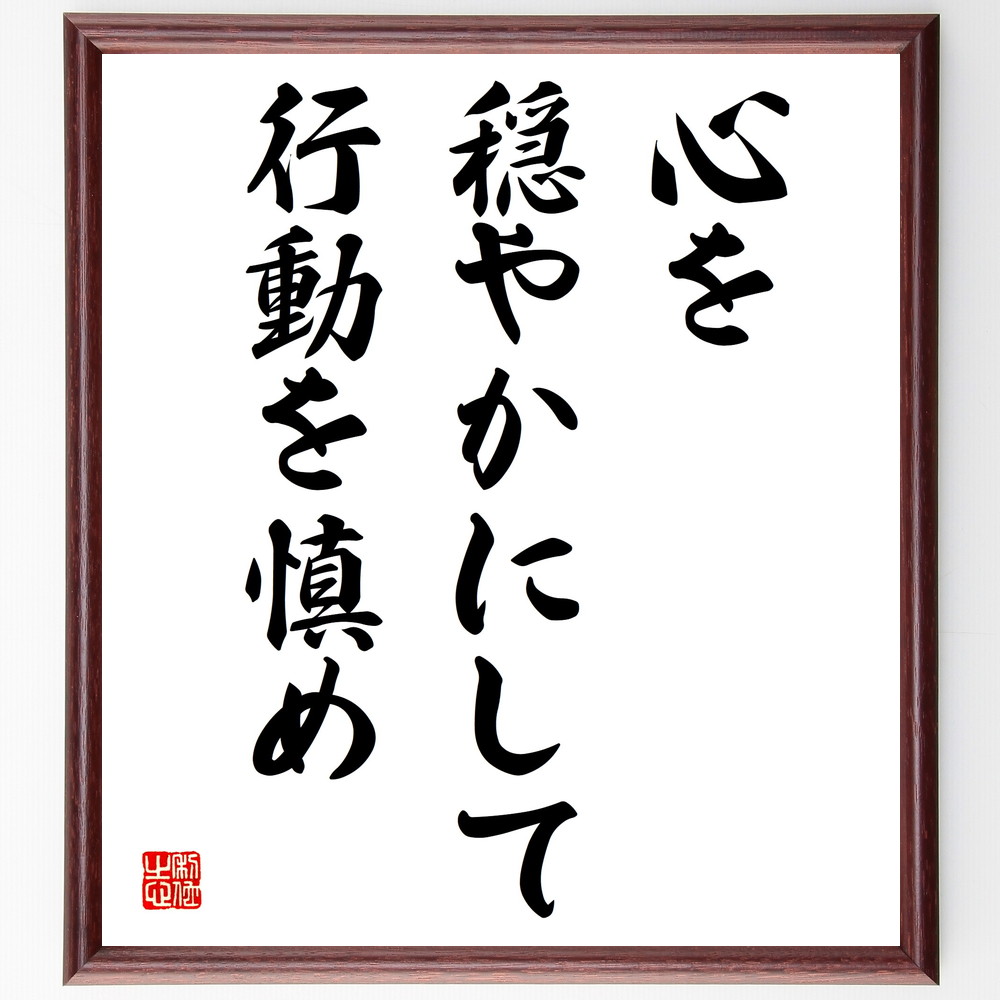 心を
穏やかにして
行動を慎め